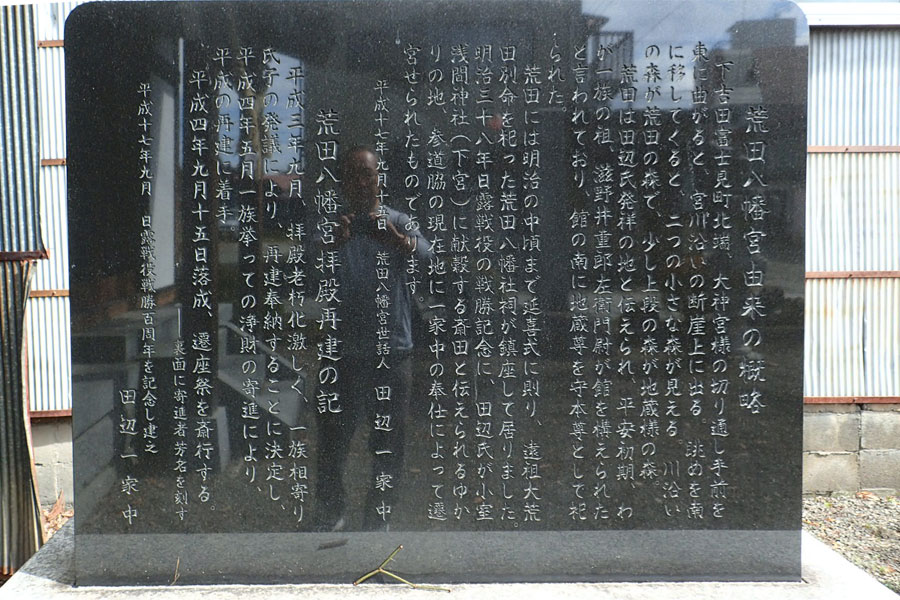 荒田八幡宮由来の概略
下吉田富士見町北端、大神宮様の切り通し手前を
東に曲がると、宮川沿いの断崖上に出る。眺めを南
に移してくると、二つの小さな森が見える。川沿い
の森が荒田の森で、少し上段の森が地蔵様の森。
荒田は田辺氏発祥の地と伝えられ、平安初期、わ
が一族の祖、滋野井重郎左衛門尉が館を構えられた
と言われており、館の南に地蔵尊を守本尊として祀
られた。
荒田には明治の中頃まで延喜式に則り、遠祖大荒
田別命を祀った荒田八幡社祠が鎮座して居りました。
明治三十八年日露戦役の戦勝記念に、田辺氏が小室
浅間神社（下宮）に献穀する斎田と伝えられるゆか
りの地、参道脇の現在地に一家中の奉仕によって遷
宮せられたものであります。
平成十七年九月十五日 荒田八幡宮世話人 田辺一家中
荒田八幡宮拝殿再建の記
平成三年九月、拝殿老朽化激しく、一族相寄り
氏子の発議により、再建奉納することに決定し、
平成四年五月一族挙っての浄財の寄進により、
平成の再建に着手。
平成四年九月十五日落成、遷座祭を斎行する。
――裏面に寄進者芳名を刻す
平成十七年九月 日露戦役戦勝百周年を記念し建之
田辺一家中